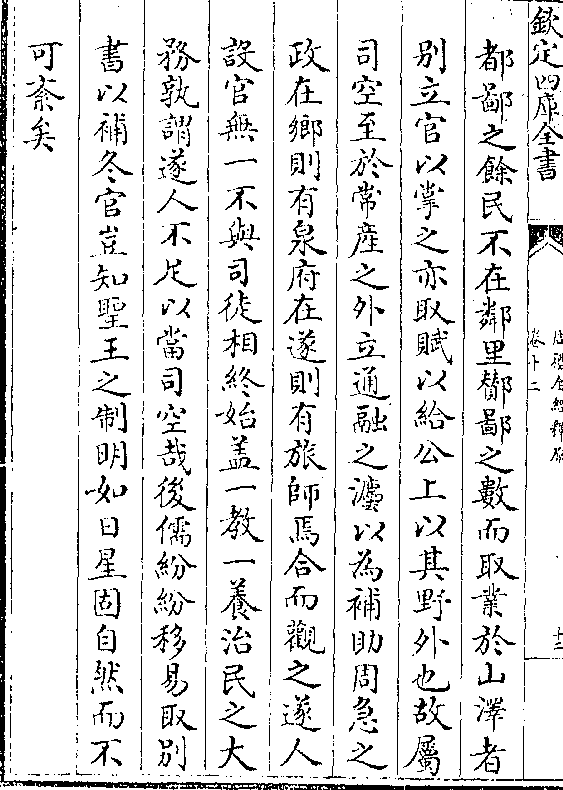 欽定四庫全書
周禮全經釋原
卷十二
十三
都鄙之餘民不在鄰里酇鄙之數而取業於山澤者
別立官以掌之亦取賦以給公上以其野外也故屬
司空至於常産之外立通融之灋以為補助周急之
政在鄉則有泉府在遂則有旅師焉合而觀之遂人
設官無一不與司徒相終始盖一教一養治民之大
務孰謂遂人不足以當司空哉後儒紛紛移易取别
書以補冬官豈知聖王之制明如日星固自然而不
可紊矣